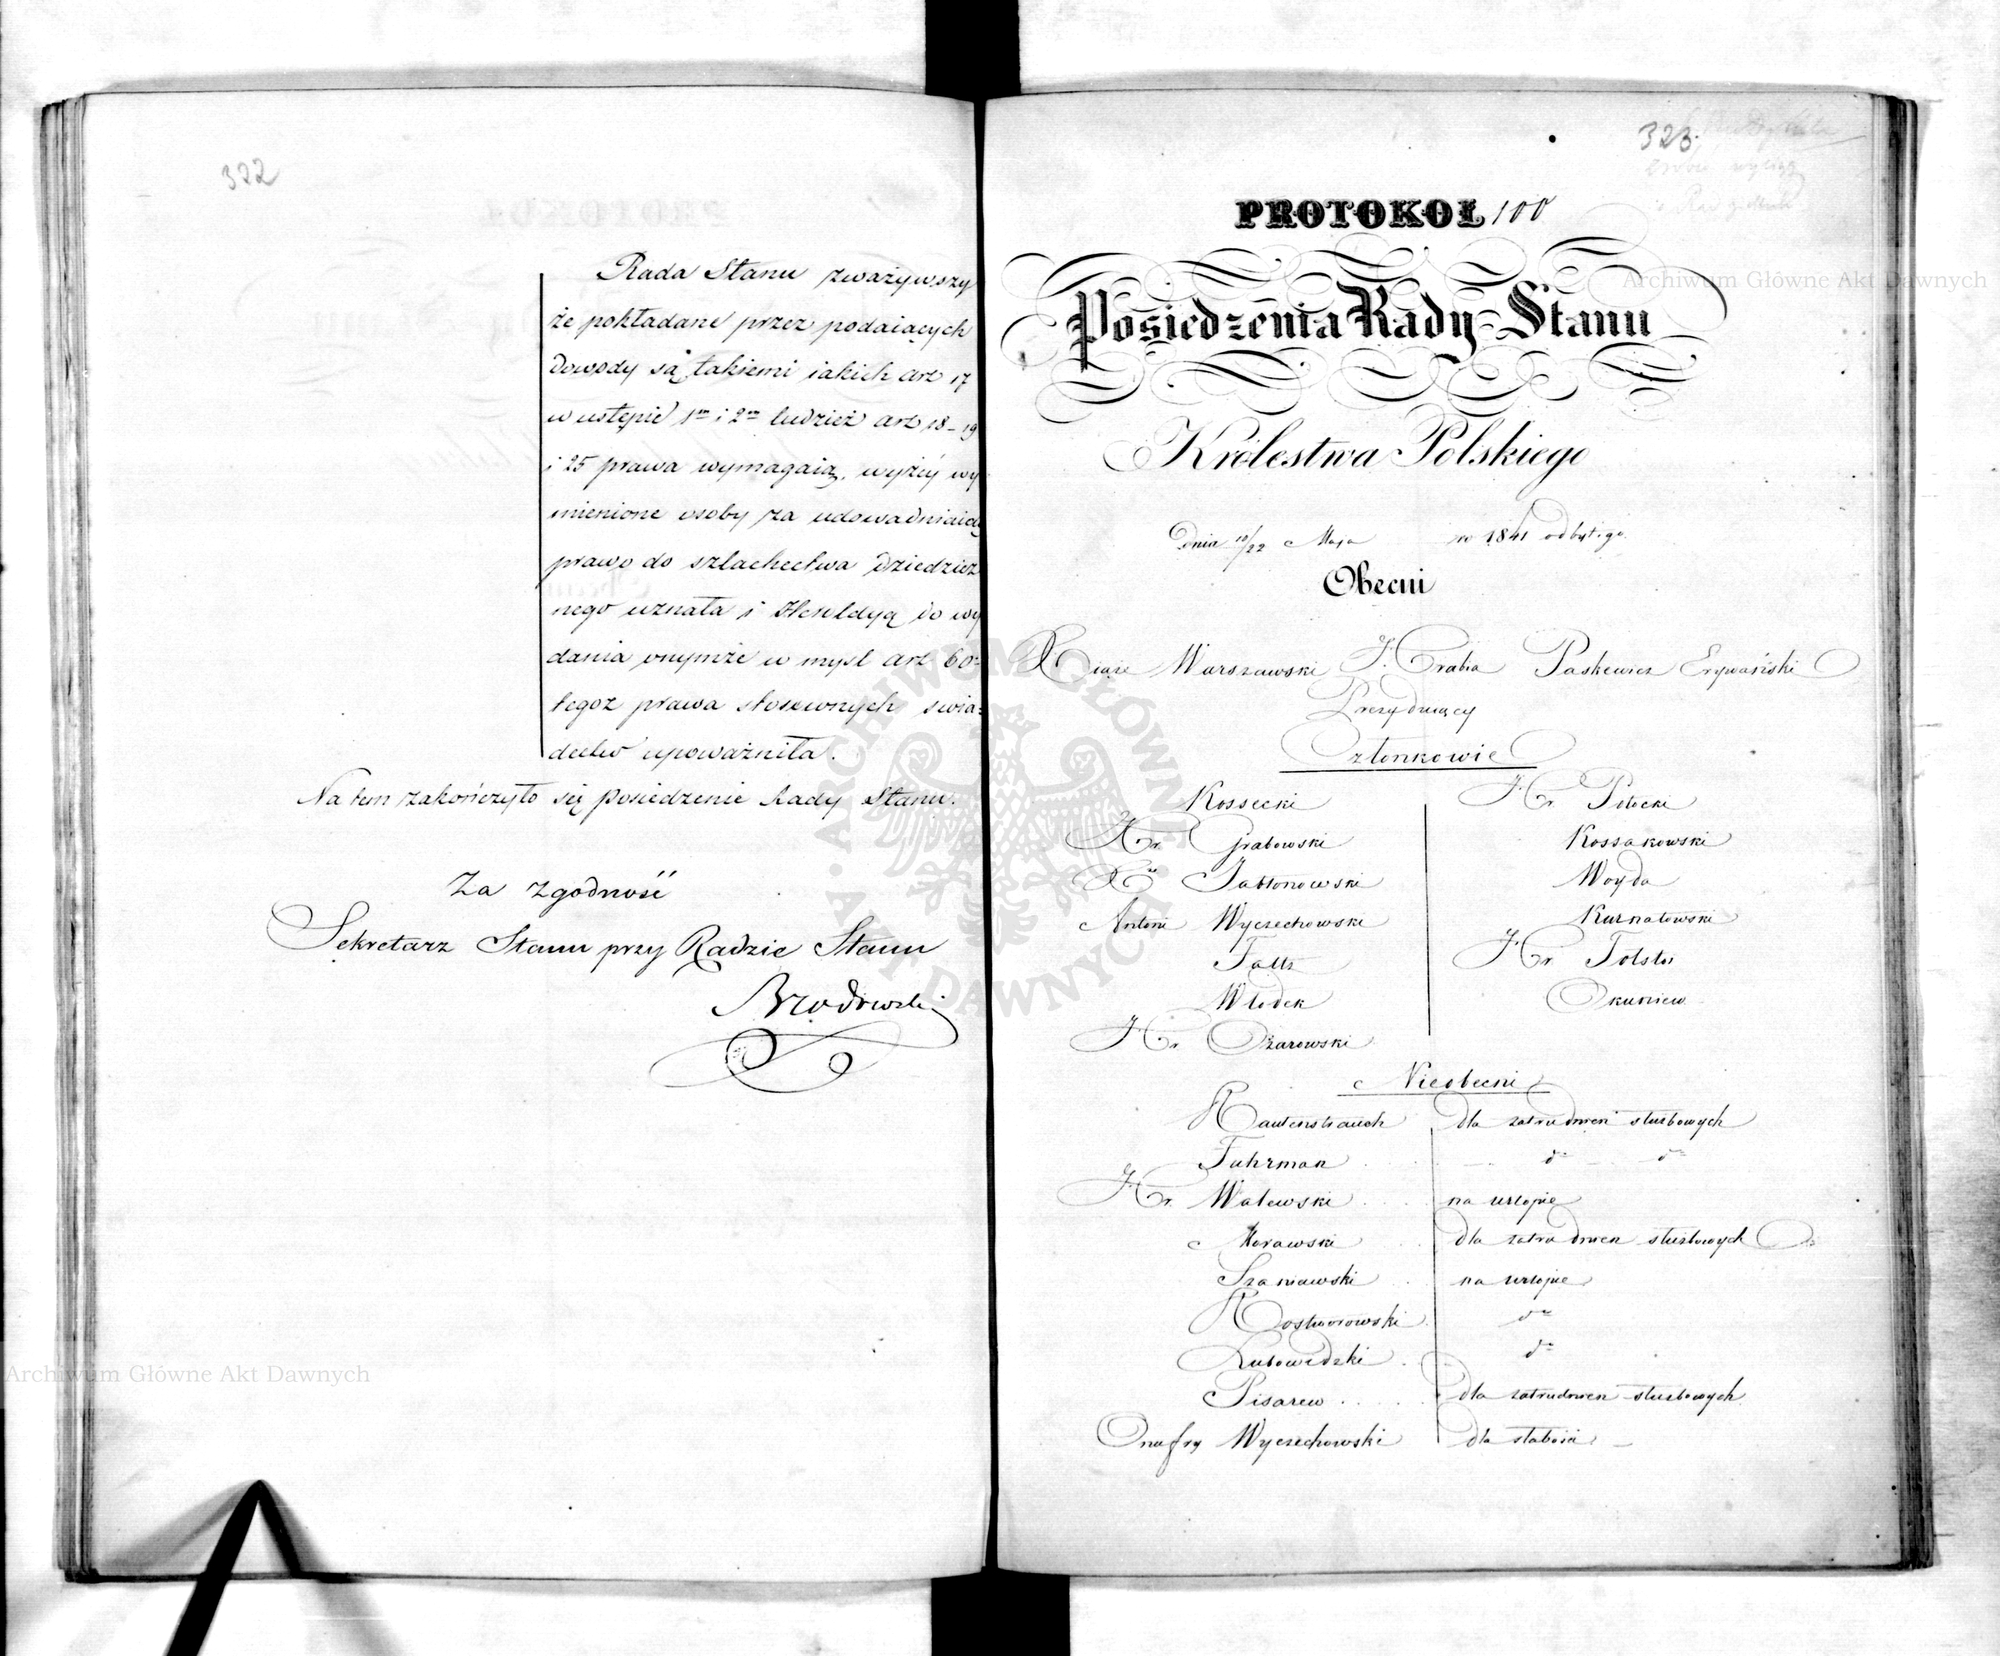 322
Rada Stanu zważywszy
że pokładane przez podaiących
dowody są takiemi iakich art 17
w ustępie 1m i 2m tudzież art 18-19
i 25 prawa wymagaią, wyżéy wy
mienione osoby za udowadniaiące
prawo do szlachectwa dziedzicz
nego uznała i Heroldyą do wy
dania onymże w myśl art 60
tegoż prawa stosownych świa=
dectw upoważniła.
Na tem zakończyło się posiedzenie Rady Stanu.
Za zgodność
Sekretarz Stanu przy Radzie Stanu
Brzozowski
323.
PROTOKÓŁ 100
Posiedzenia Rady Stanu
Królestwa Polskiego
Dnia 10/22 Maja w 1841 odbytego.
Obecni
Xiąże Warszawski Hrabia Paskewicz Erywański
Prezydujący
Członkowie
Kossecki
Hr. Grabowski
Xże Jabłonowski
Antoni Wyczechowski
Faltz
Włodek
Hr. Ożarowski
Hr. Potocki
Kossakowski
Woyda
Kurnatowski
Hr. Tolstoi
Okuniew
Nieobecni
Rautenstrauch dla zatrudnień służbowych
Fuhrman do do
Hr. Walewski na urlopie
Morawski dla zatrudnień służbowych
Szaniawski na urlopie
Rostworowski do
Lubowidzki do
Pisarew dla zatrudnień służbowych
Onufry Wyczechowski dla słabości
Archiwum Główne Akt Dawnych
Archiwum Główne Akt Dawnych
ARCHIWUM GŁÓWNE AKT DAWNYCH